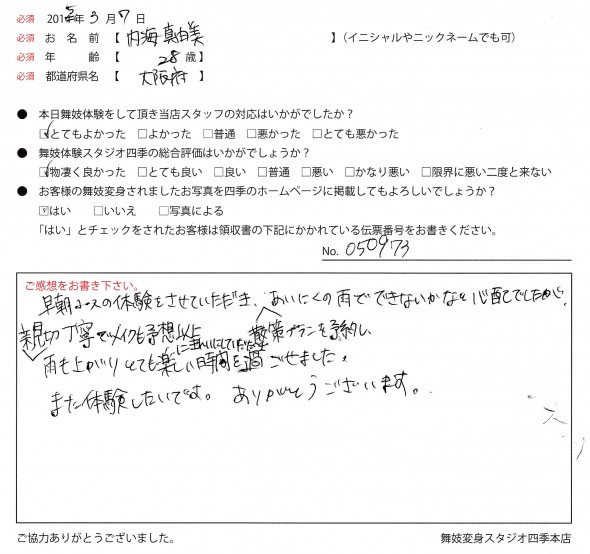 必須 2015年 3 月 7 日
必須 お 名 前 【 内海 真由美 】(イニシャルやニックネームでも可)
必須 年 齢 【 28 歳】
必須 都道府県名 【 大阪府 】
● 本日舞妓体験をして頂き当店スタッフの対応はいかがでしたか?
☑とてもよかった □よかった □普通 □悪かった □とても悪かった
● 舞妓体験スタジオ四季の総合評価はいかがでしょうか?
☑物凄く良かった □とても良い □良い □普通 □悪い □かなり悪い □限界に悪い二度と来ない
● お客様の舞妓変身されましたお写真を四季のホームページに掲載してもよろしいでしょうか?
☑はい □いいえ □写真による
「はい」とチェックをされたお客様は領収書の下記にかかれている伝票番号をお書きください。
No. 050973
ご感想をお書き下さい。
早朝コースの体験をさせていただき、あいにくの雨でできないかなと心配でしたが、
親切丁寧でメイクも予想以上に
散策プランを予約し、
雨も上がりとても楽しい時間を過ごせました。
また体験したいです。 ありがとうございます。
ご協力ありがとうございました。
舞妓変身スタジオ四季本店